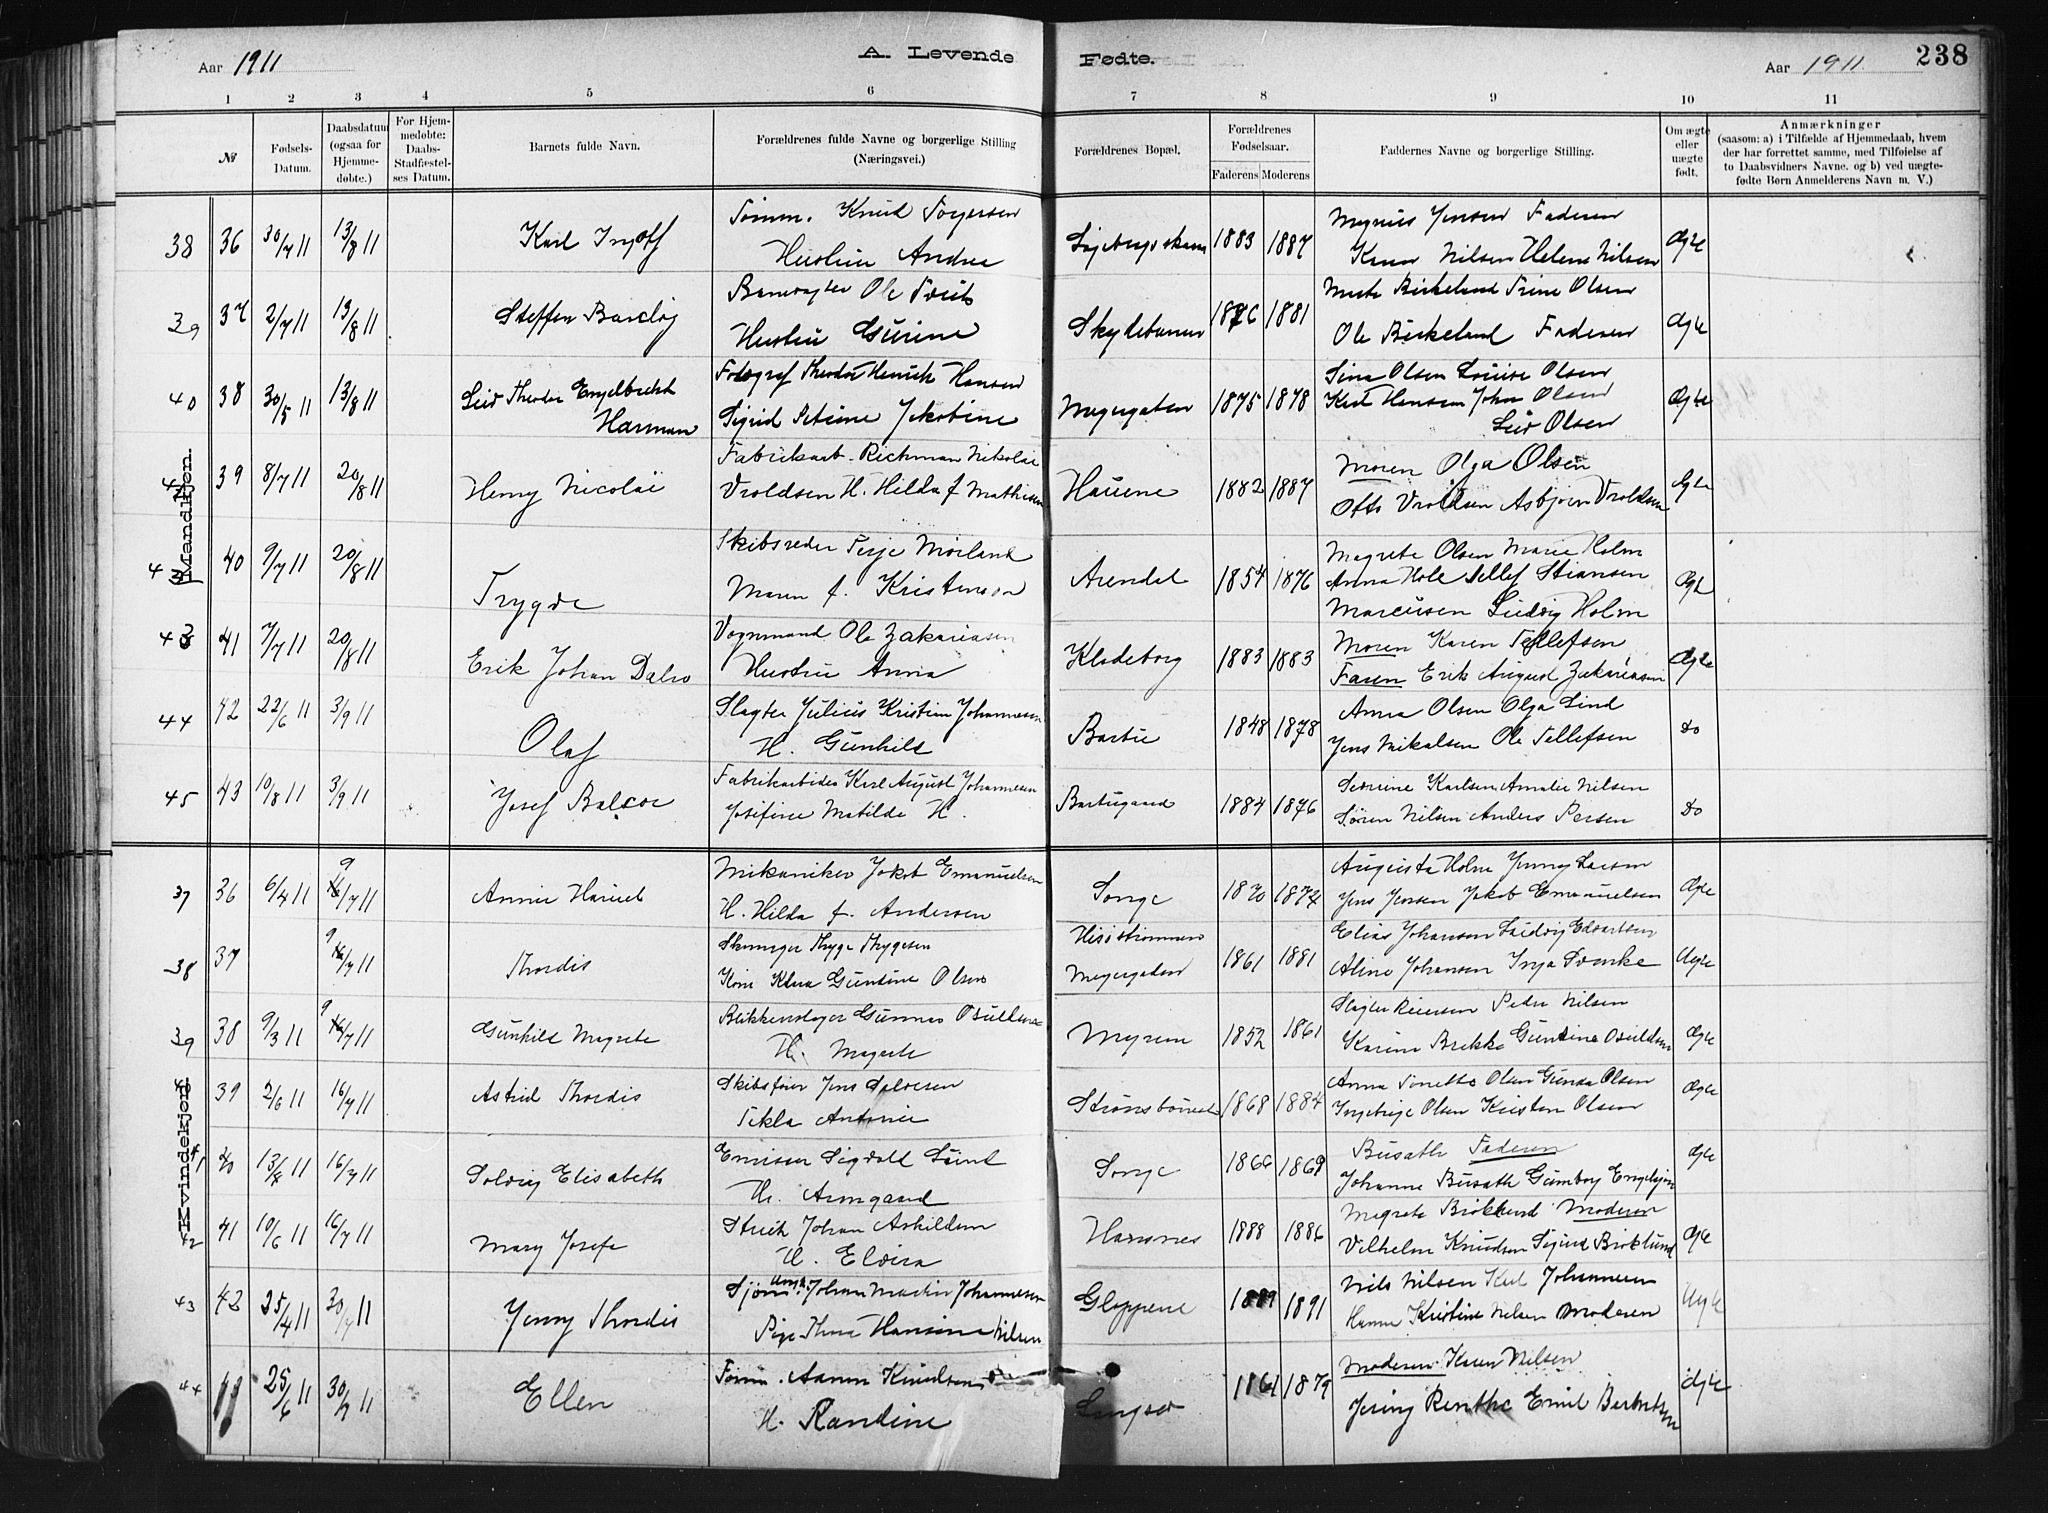 Aar 1911
A. Levende Fødte.
Aar 1911
238
1 2 3 4 5 6 7 8 9 10 11
№
Fødsels-
Datum.
Daabsdatum
(ogsaa for
Hjemme-
døbte.)
For Hjem-
medøbte:
Daabs-
Stadfæstel-
ses Datum.
Barnets fulde Navn.
Forældrenes fulde Navne og borgerlige Stilling
(Næringsvei.)
Forældrenes Bopæl.
Forældrenes
Fødselsaar.
Faderens Moderens
Faddernes Navne og borgerlige Stilling.
Om ægte
eller
uægte
født.
Anmærkninger
(saasom: a) i Tilfælde af Hjemmedaab, hvem
der har forrettet samme, med Tilføielse af
to Daabsvidners Navne. og b) ved uægte-
fødte Børn Anmelderens Navn m. V.)
Mandkjøn.
38 36 30/7 11 13/8 11 Karl Ingolf
Tømm. Knud Torjersen
Hustru Andrea
1883 1887
Magnus Jensen Faderen
Karen Nilsen Helene Nilsen
Ægte
39 37 2/7 11 13/8 11 Steffen
Ole
Hustru Gurine
Skydebanen 1876 1881
Marte Birkeland Trine Olsen
Ole Birkeland Faderen
Ægte
40 38 30/5 11 13/8 11 Leiv Theodor Engelbrekt
Harman
Fotograf Theodor Henrik Hansen
Sigrid Petrine Jakobine
Meyergaten 1875 1878
Sina Olsen Louise Olsen
Karl Hansen John Olsen
Leiv Olsen
Ægte
39 8/7 11 20/8 11 Henry Nicolai
Fabrikarb. Rickman Nikolai
Vroldsen H. Hilda f. Mathisen
Hauene 1882 1887
Moren Olga Olsen
Otto Vroldsen Asbjørn Vroldsen
Ægte
40 9/7 11 20/8 11 Trygve
Skibsreder Terje Mørland
Maren f. Kristensen
Arendal 1854 1876
Magrete Olsen Marie Holm
Anna Hole Tellef Stiansen
Marcusen Ludvig Holm
Ægte
43 41 7/7 11 20/8 11 Erik Johan
Vognmand Ole Zakariasen
Hustru Anna
Klodeborg 1883 1883
Moren Karen Tellefsen
Faren Erik August Zakariasen
Ægte
44 42 22/6 11 3/9 11 Olaf
Slagter Julius Kristian Johannesen
H. Gunhild
Barbu 1848 1878
Anna Olsen Olga Lind
Jens Mikalsen Ole Tellefsen
Do
45 43 10/8 11 3/9 11 Josef
Fabrikarbeider Karl August Johannesen
Josifine Matilde H.
Barbugaard 1884 1876
Severine Karlsen Amalie Nilsen
Søren Nilsen Anders Persen
Do
Kvindekjøn
37 36 6/4 11 9/7 11 Annie Harriet
Mikaniker Jakob Emanuelsen
H. Hilda f. Andersen
Songe 1870 1874
Augusta Holm Jenny Larsen
Jens Jensen Jakob Emanuelsen
Ægte
38 37 9/7 11 Thordis
Trygve Thygesen
Kone Klara Guntine Olsen
Meyergaten 1861 1881
Elias Johansen Ludvig Edvartsen
Aline Johansen Inga
Uægte
39 38 9/3 11 9/7 11 Gunhild Magrete
Blikkenslager Gunnar
H. Magrete
Myrene 1852 1861
Slagter Reiersen Peder Nilsen
Karine Brekke Guntine
Ægte
39 2/6 11 16/7 11 Astrid Thordis
Skibsfører Jens Salvesen
Tekla Antonie
1868 1884
Anna Tonette Olsen Gunda Olsen
Ingebrigt Olsen Kristen Olsen
Ægte
41 40 16/7 11 Solveig Elisabeth
Sigvald
H. Armgaard
Songe 1866 1869
Busath Faderen
Johanne Busath
Ægte
42 41 10/6 11 16/7 11 Mary Josefa
Johan Askildsen
H. Elvira
Hansnes 1888 1886
Magrete Moderen
Vilhelm Knudsen
Ægte
43 42 25/4 11 30/7 11 Jenny Thordis
Ungk. Johan Martin Johannesen
Pige Thora Hansine Nilsen
Gloppene 1889 1891
Nils Nilsen Karl Johannesen
Hanna Kristine Nilsen Moderen
Uægte
44 25/6 11 30/7 11 Ellen
Tømm. Aanon Knudsen
H. Randine
Langsæ 1861 1879
Moderen Karen Nilsen
Emil Berntsen
Ægte